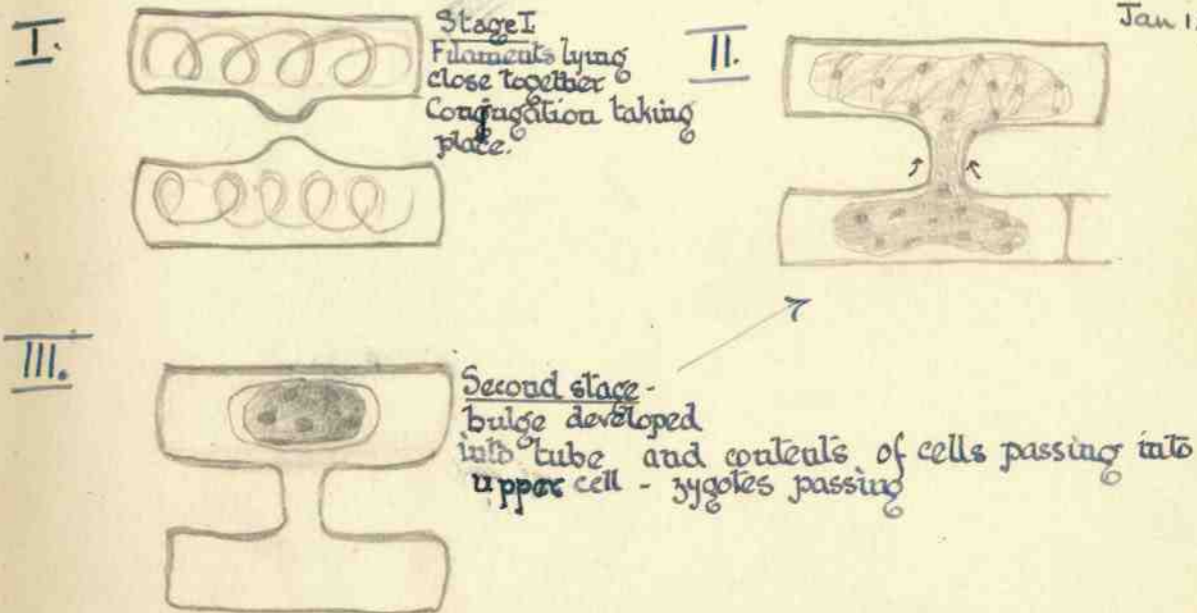 Jan 1.
I.
Stage I
Filaments lying
close together
Conjugation taking
place.
II.
III.
Second stage -
bulge developed
into tube and contents of cells passing into
upper cell - zygotes passing